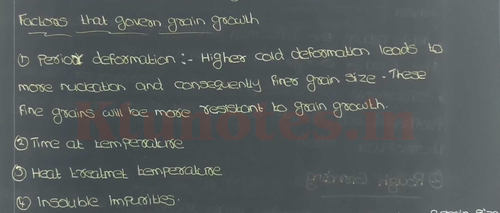 Factors that govern grain growth
① Perior deformation :- Higher cold deformation leads to
more nucleation and consequently finer grain size. These
fine grains will be more resistant to grain growth.
Ktunotes.in
② Time at temperature
③ Heat treatmet temperature
④ Insoluble Impurities.